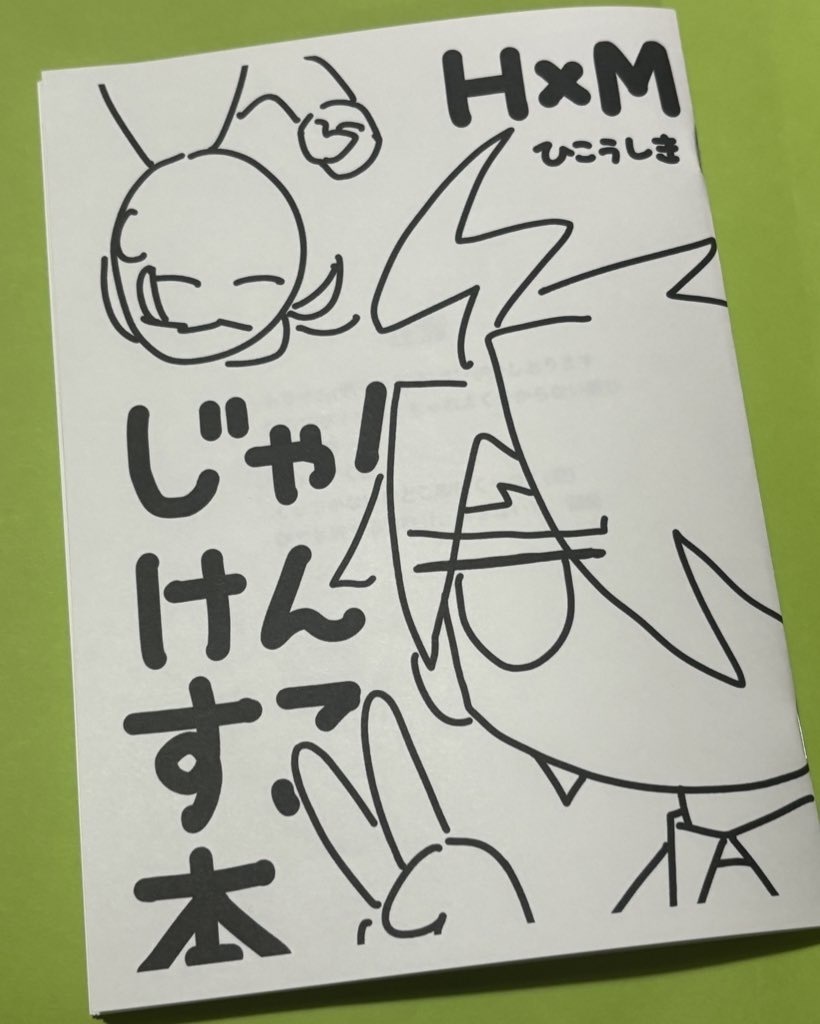 H×M
ひこうしき
じゃん
けん
する
本